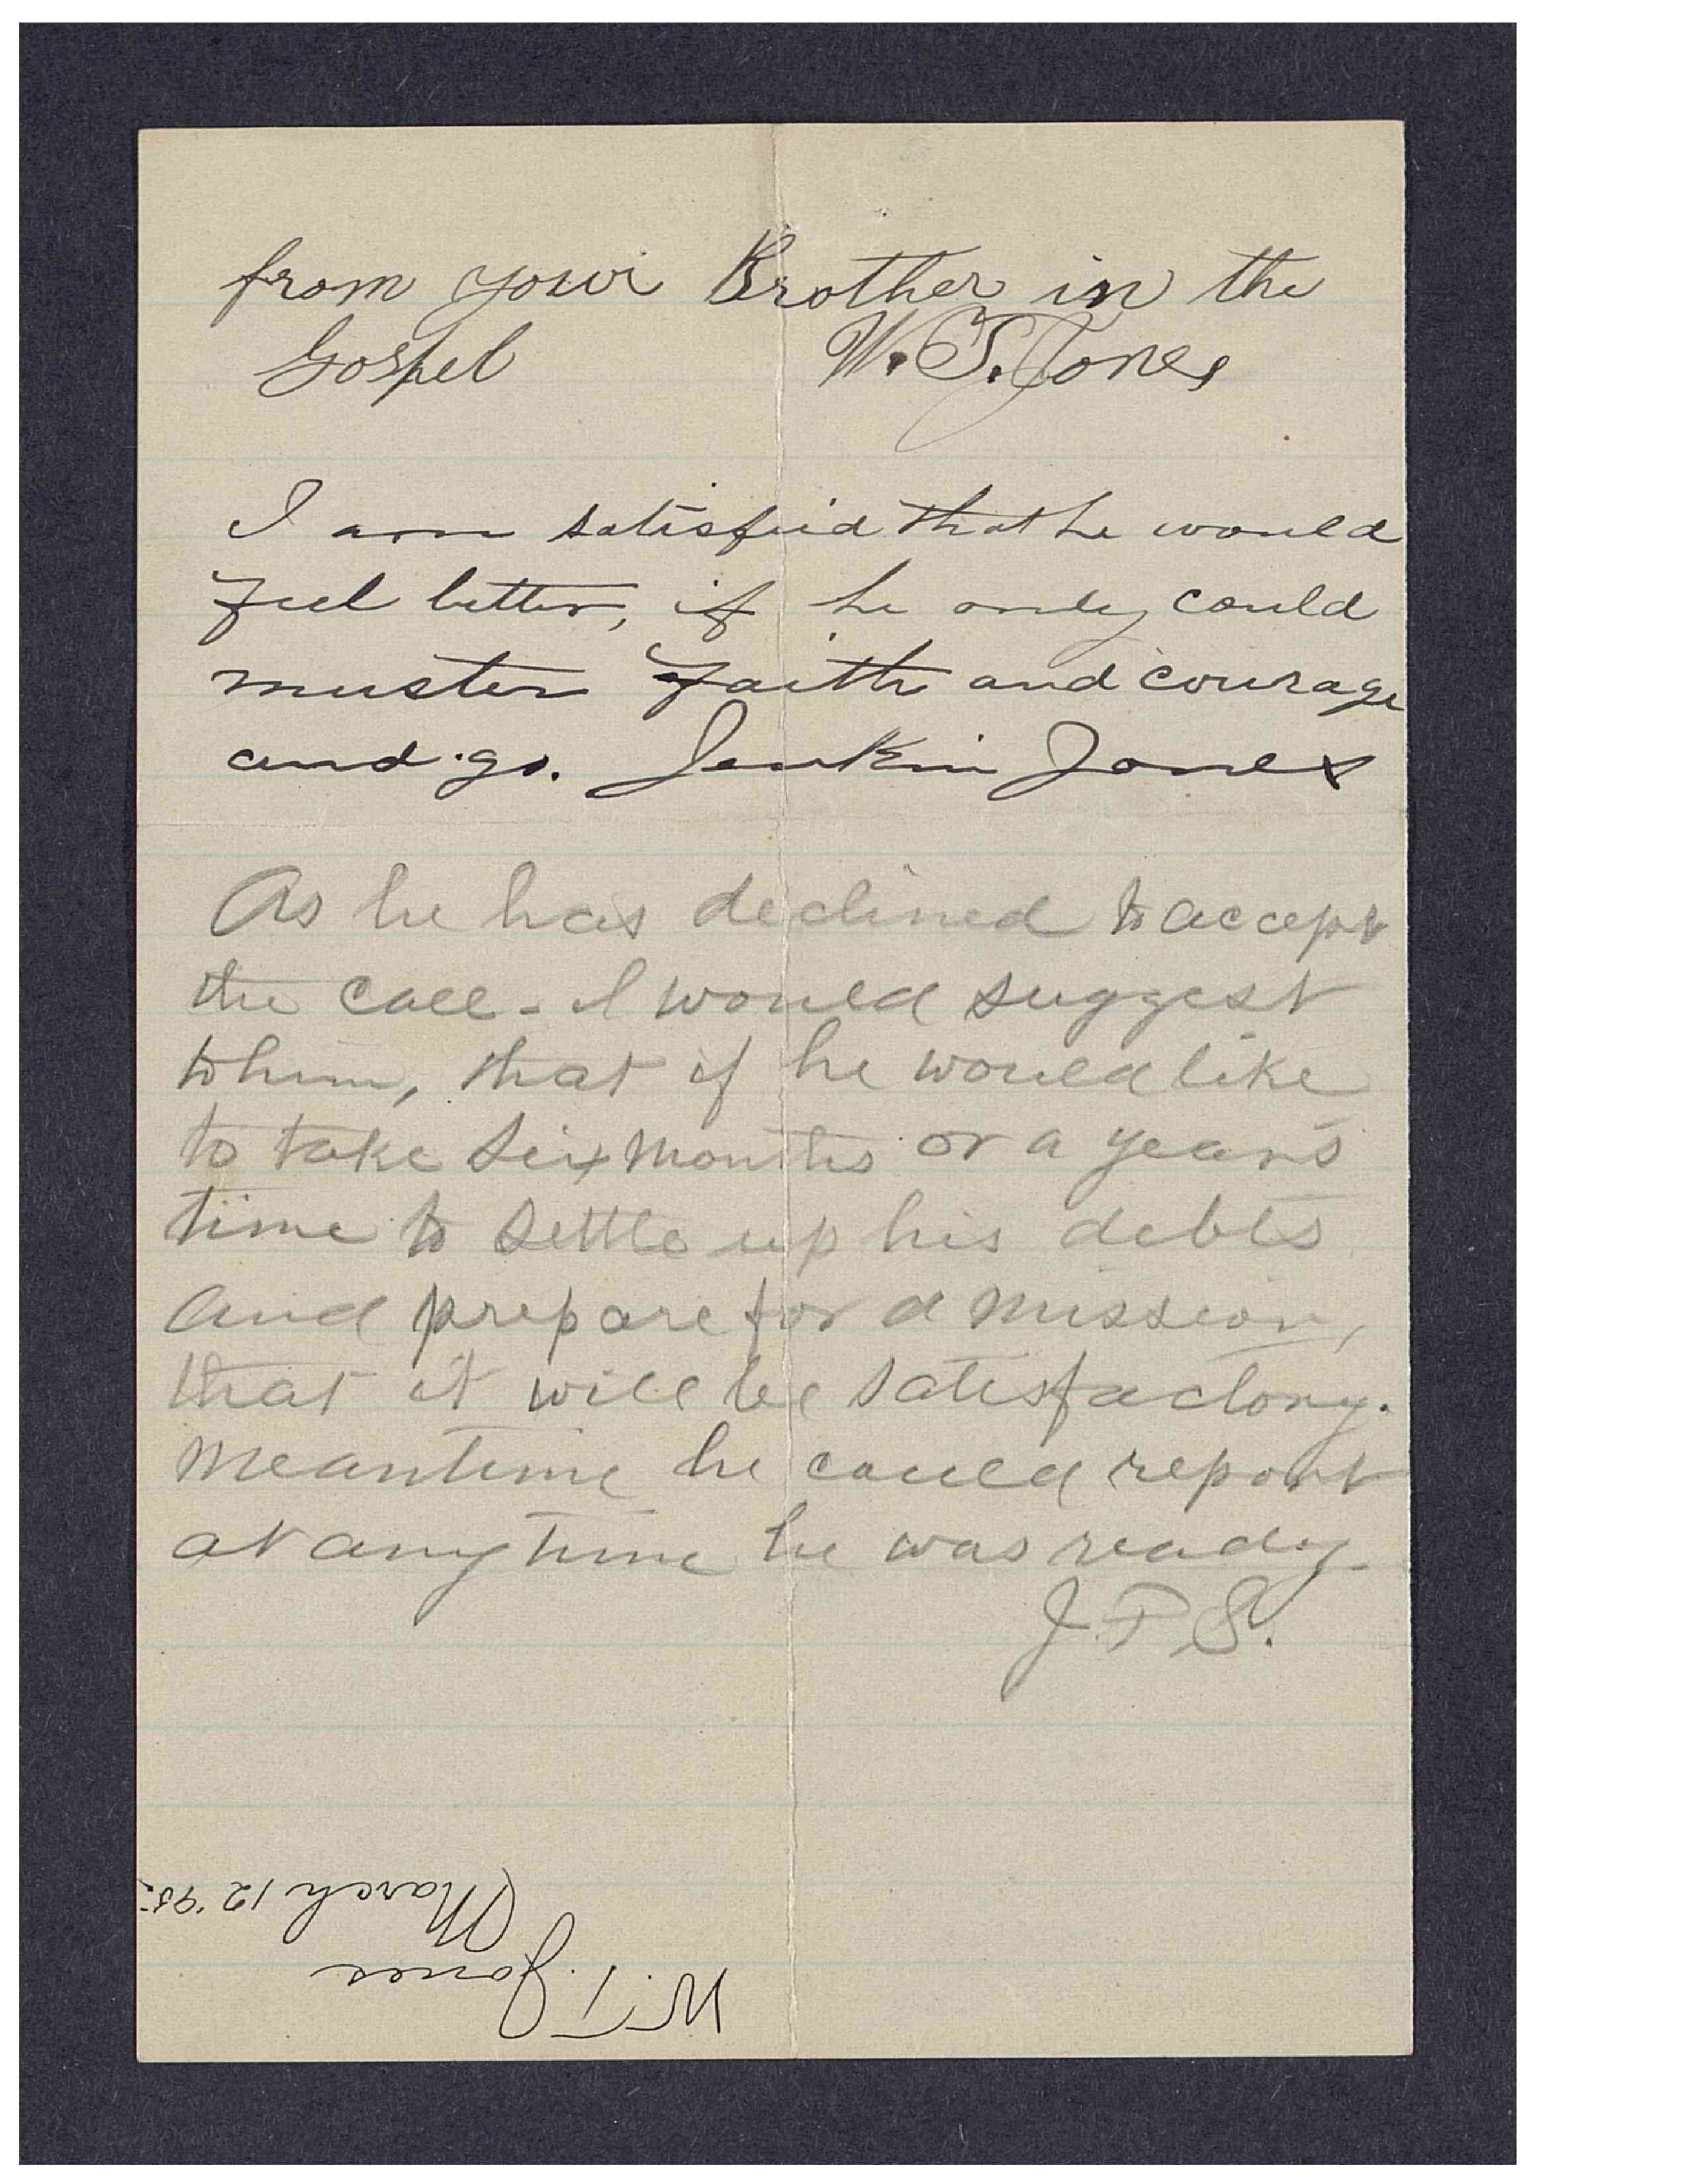 from your Brother in the
Gospel W. T. Jones
I am satisfied that he would
feel better, if he only could
muster faith and courage
and go. Jenkin Jones
As he has declined to accept
the call - I would suggest
to him, that if he would like
to take six months or a year's
time to settle up his debts
and prepare for a mission,
that it will be satisfactory.
Meantime he could report
at any time he was ready.
J. F. S.
W. T. Jones
March 12 '95.